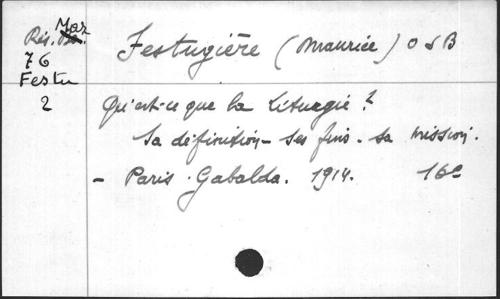 Mar
Rés.
76
Festu
2
Festugière (Maurice) O S B
Qu'est-ce que la Liturgie ?
Sa définition - ses fins - sa mission.
- Paris. Gabalda. 1914. 16°